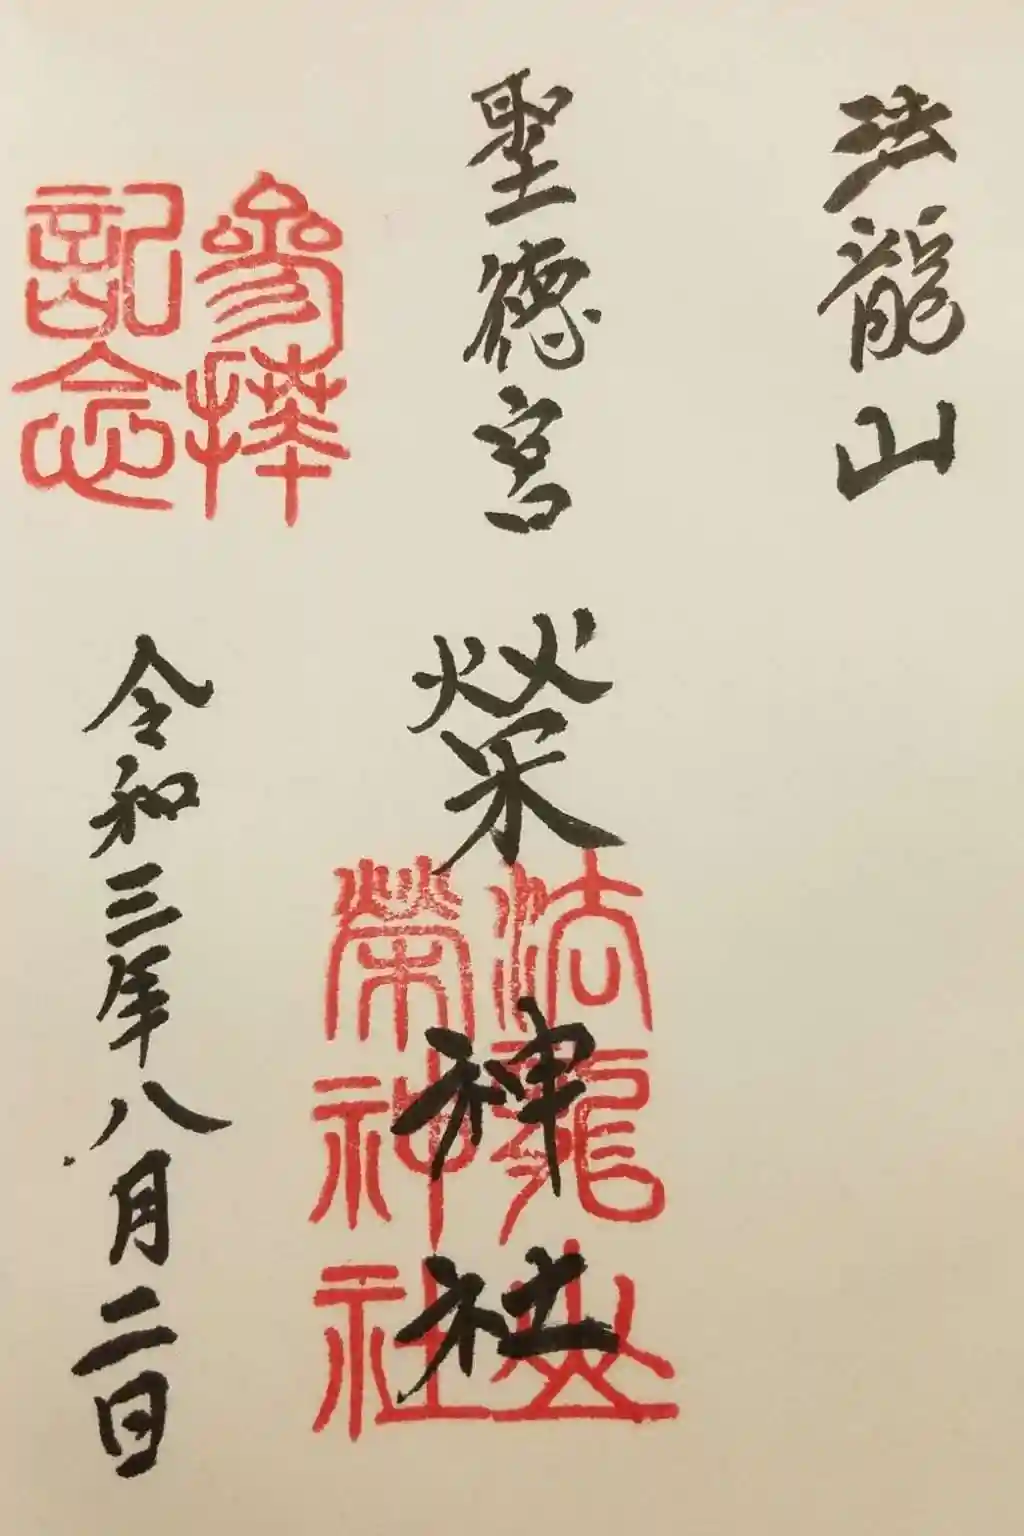 法龍山
聖德宮
榮神社
法龍山
榮神社
參拝
記念
令和三年八月二日